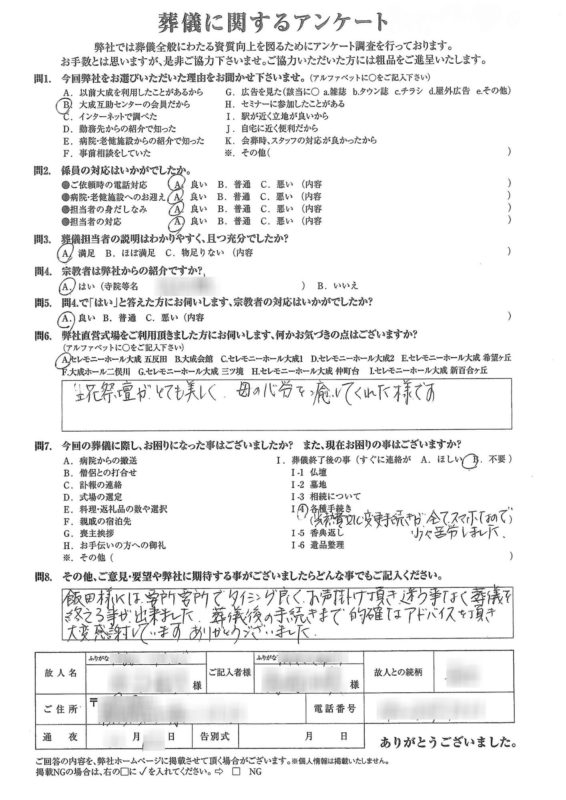 葬儀に関するアンケート
弊社では葬儀全般にわたる資質向上を図るためにアンケート調査を行っております。
お手数とは思いますが、是非ご協力下さいませ。ご協力いただいた方には粗品をご進呈いたします。
問1. 今回弊社をお選びいただいた理由をお聞かせ下さいませ。(アルファベットに○をご記入下さい)
A. 以前大成を利用したことがあるから G. 広告を見た(該当に○ a.雑誌 b.タウン誌 c.チラシ d.屋外広告 e.その他)
B. 大成互助センターの会員だから H. セミナーに参加したことがある
C. インターネットで調べた I. 駅が近く立地が良いから
D. 勤務先からの紹介で知った J. 自宅に近く便利だから
E. 病院・老健施設からの紹介で知った K. 会葬時、スタッフの対応が良かったから
F. 事前相談をしていた ※. その他( )
問2. 係員の対応はいかがでしたか。
●ご依頼時の電話対応 A. 良い B. 普通 C. 悪い (内容 )
●病院・老健施設へのお迎え A. 良い B. 普通 C. 悪い (内容 )
●担当者の身だしなみ A. 良い B. 普通 C. 悪い (内容 )
●担当者の対応 A. 良い B. 普通 C. 悪い (内容 )
問3. 葬儀担当者の説明はわかりやすく、且つ充分でしたか?
A. 満足 B. ほぼ満足 C. 物足りない (内容 )
問4. 宗教者は弊社からの紹介ですか?
A. はい (寺院等名 ) B. いいえ
問5. 問4.で「はい」と答えた方にお伺いします、宗教者の対応はいかがでしたか?
A. 良い B. 普通 C. 悪い (内容 )
問6. 弊社直営式場をご利用頂きました方にお伺いします、何かお気づきの点はございますか?
(アルファベットに○をご記入下さい)
A.セレモニーホール大成 五反田 B.大成会館 C.セレモニーホール大成1 D.セレモニーホール大成2 E.セレモニーホール大成 希望ヶ丘
F.大成ホール二俣川 G.セレモニーホール大成 三ツ境 H.セレモニーホール大成 仲町台 I.セレモニーホール大成 新百合ヶ丘
生花祭壇がとても美しく、母の心労を癒してくれた様です
問7. 今回の葬儀に際し、お困りになった事はございましたか? また、現在お困りの事はございますか?
A. 病院からの搬送 I. 葬儀終了後の事 (すぐに連絡が A. ほしい B. 不要)
B. 僧侶との打合せ I-1 仏壇
C. 訃報の連絡 I-2 墓地
D. 式場の選定 I-3 相続について
E. 料理・返礼品の数や選択 I-4 各種手続き
F. 親戚の宿泊先 (公共料金など変更手続きが全てスマホなので)
G. 喪主挨拶 I-5 香典返し 少々苦労しました。
H. お手伝いの方への御礼 I-6 遺品整理
※. その他 ( )
問8. その他、ご意見・要望や弊社に期待する事がございましたらどんな事でもご記入ください。
飯田様には要所要所でタイミング良くお声掛け頂き迷う事なく葬儀を
終える事が出来ました。葬儀後の手続きまで的確なアドバイスを頂き
大変感謝しています ありがとうございました。
故人名 ふりがな 様 ご記入者様 ふりがな 様 故人との続柄
ご住所 〒 電話番号
通夜 月 日 告別式 月 日 ありがとうございました。
ご回答の内容を、弊社ホームページに掲載させて頂く場合がございます。※個人情報は掲載いたしません。
掲載NGの場合は、右の□に✓を入れてください。⇨ □ NG